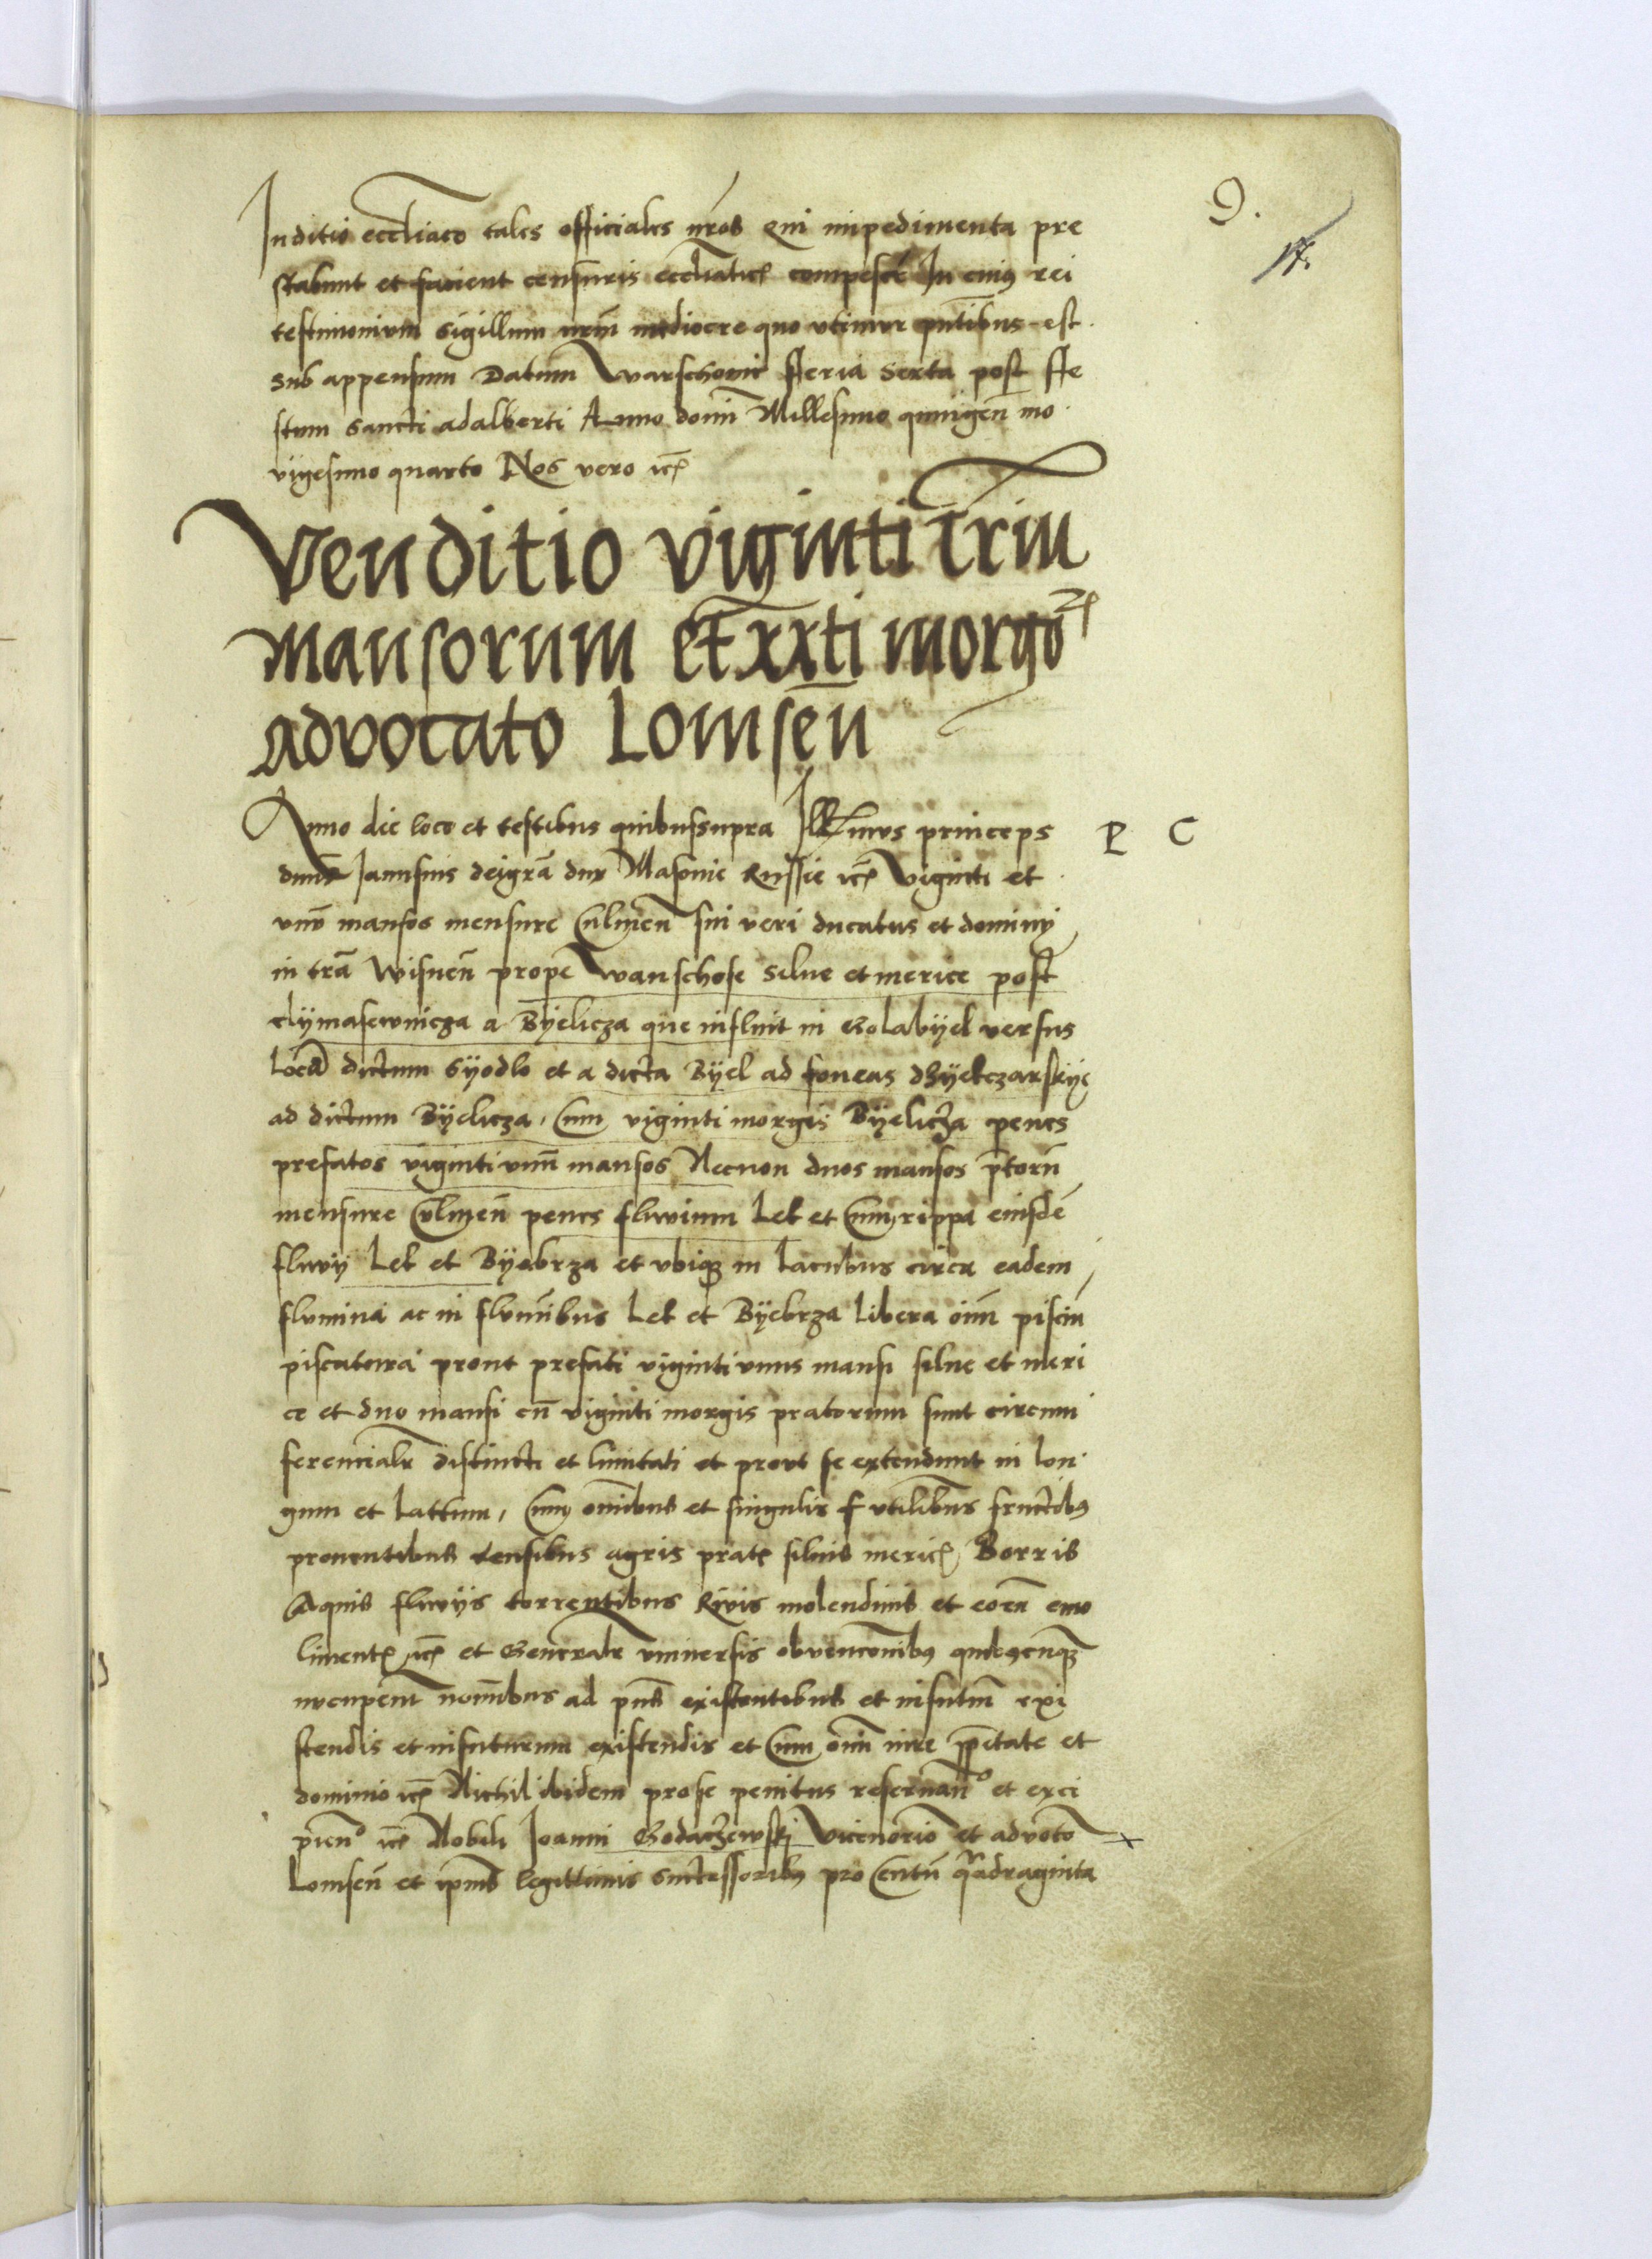 9.
17.
Inditio eccl̄iaco tales officiales nr̄os qui impedimenta pre
stabunt et facient censuris eccl̄iatic̄ compescē In cuius rei
testimonium sigillum nr̄m mediocre quo vtimur pn̄tibus est
sub appensum Datum Warschovie fferia sexta post ffe
stum sancti adalberti Anno domī Millesimo quingen mo
vigesimo quarto Nos vero ic̄
Venditio viginti triū
mansorum et xxti morgoꝝ
advocato Lomsen̄
Anno die loco et testibus quibussupra Illr̄mus princeps
P C
dn̄us Janusius deigrā dux Masovie Russie ic̄ Viginti et
vnū mansos mensure Culmen̄ sui veri ducatus et dominij
in trā Wisnen̄ prope Wanschose silue et merice post
clijmasewnicza a Bijelicza que influit in Golabijel versus
Locū dictum Syodlo et a dicta Bijel ad foueas
ad dictum Bijelicza, Cum viginti morgis Bijelicza penes
prefatos viginti vnū mansos Necnon duos mansos p̄torū
mensure Culmen̄ penes fluvium Lek et Cum rippa eiusdē
fluvij Lek et Byabrza et vbiqꝫ in lacubus circa eadem
flumina ac in flumībus Lek et Byebrza libera oīm pisciū
piscatura prout prefati viginti vnus mansi silue et meri
ce et duo mansi cū viginti morgis pratorum sunt circum
ferencialr̄ distincti et limitati et prout se extendunt in lon
gum et lattum, Cum omībus et singulis f vtilibus fructibꝰ
prouentibus censibus agris pratꝭ siluis mericꝭ Borris
Aquis fluvijs torrentibus Rivis molendinis et eorū emo
limentꝭ ic̄ et Generalr̄ vniuersis obventōnibꝰ quibꝰcūqꝫ
nūcupent nomībus ad pn̄s existentibus et infutm̄ exi
stendis et infuturum existendis et Cum omī iure pp̄etate et
dominio ic̄ Nichil ibidem prose penitus reseruan̄º et exci
pien̄º ic̄ Nobili Joanni Godaczewskj Vicenorio et advoto
Lomsen̄ et ip̄ius legittimis Successoribꝰ pro Centū quadraginta